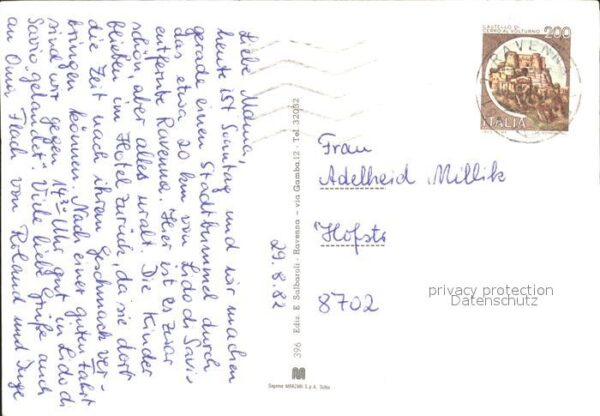 Liebe Mama,
heute ist Sonntag und wir machen
gerade einen Stadtbummel durch
das etwa 20 km von Lido di Savio
entfernte Ravenna. Hier ist es zwar
schön, aber alles uralt. Die Kinder
bleiben im Hotel zurück, da sie dort
die Zeit nach ihrem Geschmack ver-
bringen können. Nach einer guten Fahrt
sind wir gegen 14³⁰ Uhr gut in Lido di
Savio gelandet. Viele liebe Grüße auch
an Omi Flach von Roland und Inge
29.8.82
396 Ediz. E Salbaroli - Ravenna - via Gamba,12 - Tel. 32032
CASTELLO DI
CERRO AL VOLTURNO
200
ITALIA
RAVENN
Frau
Adelheid Millik
Höfstr
8702
privacy protection
Datenschutz
M